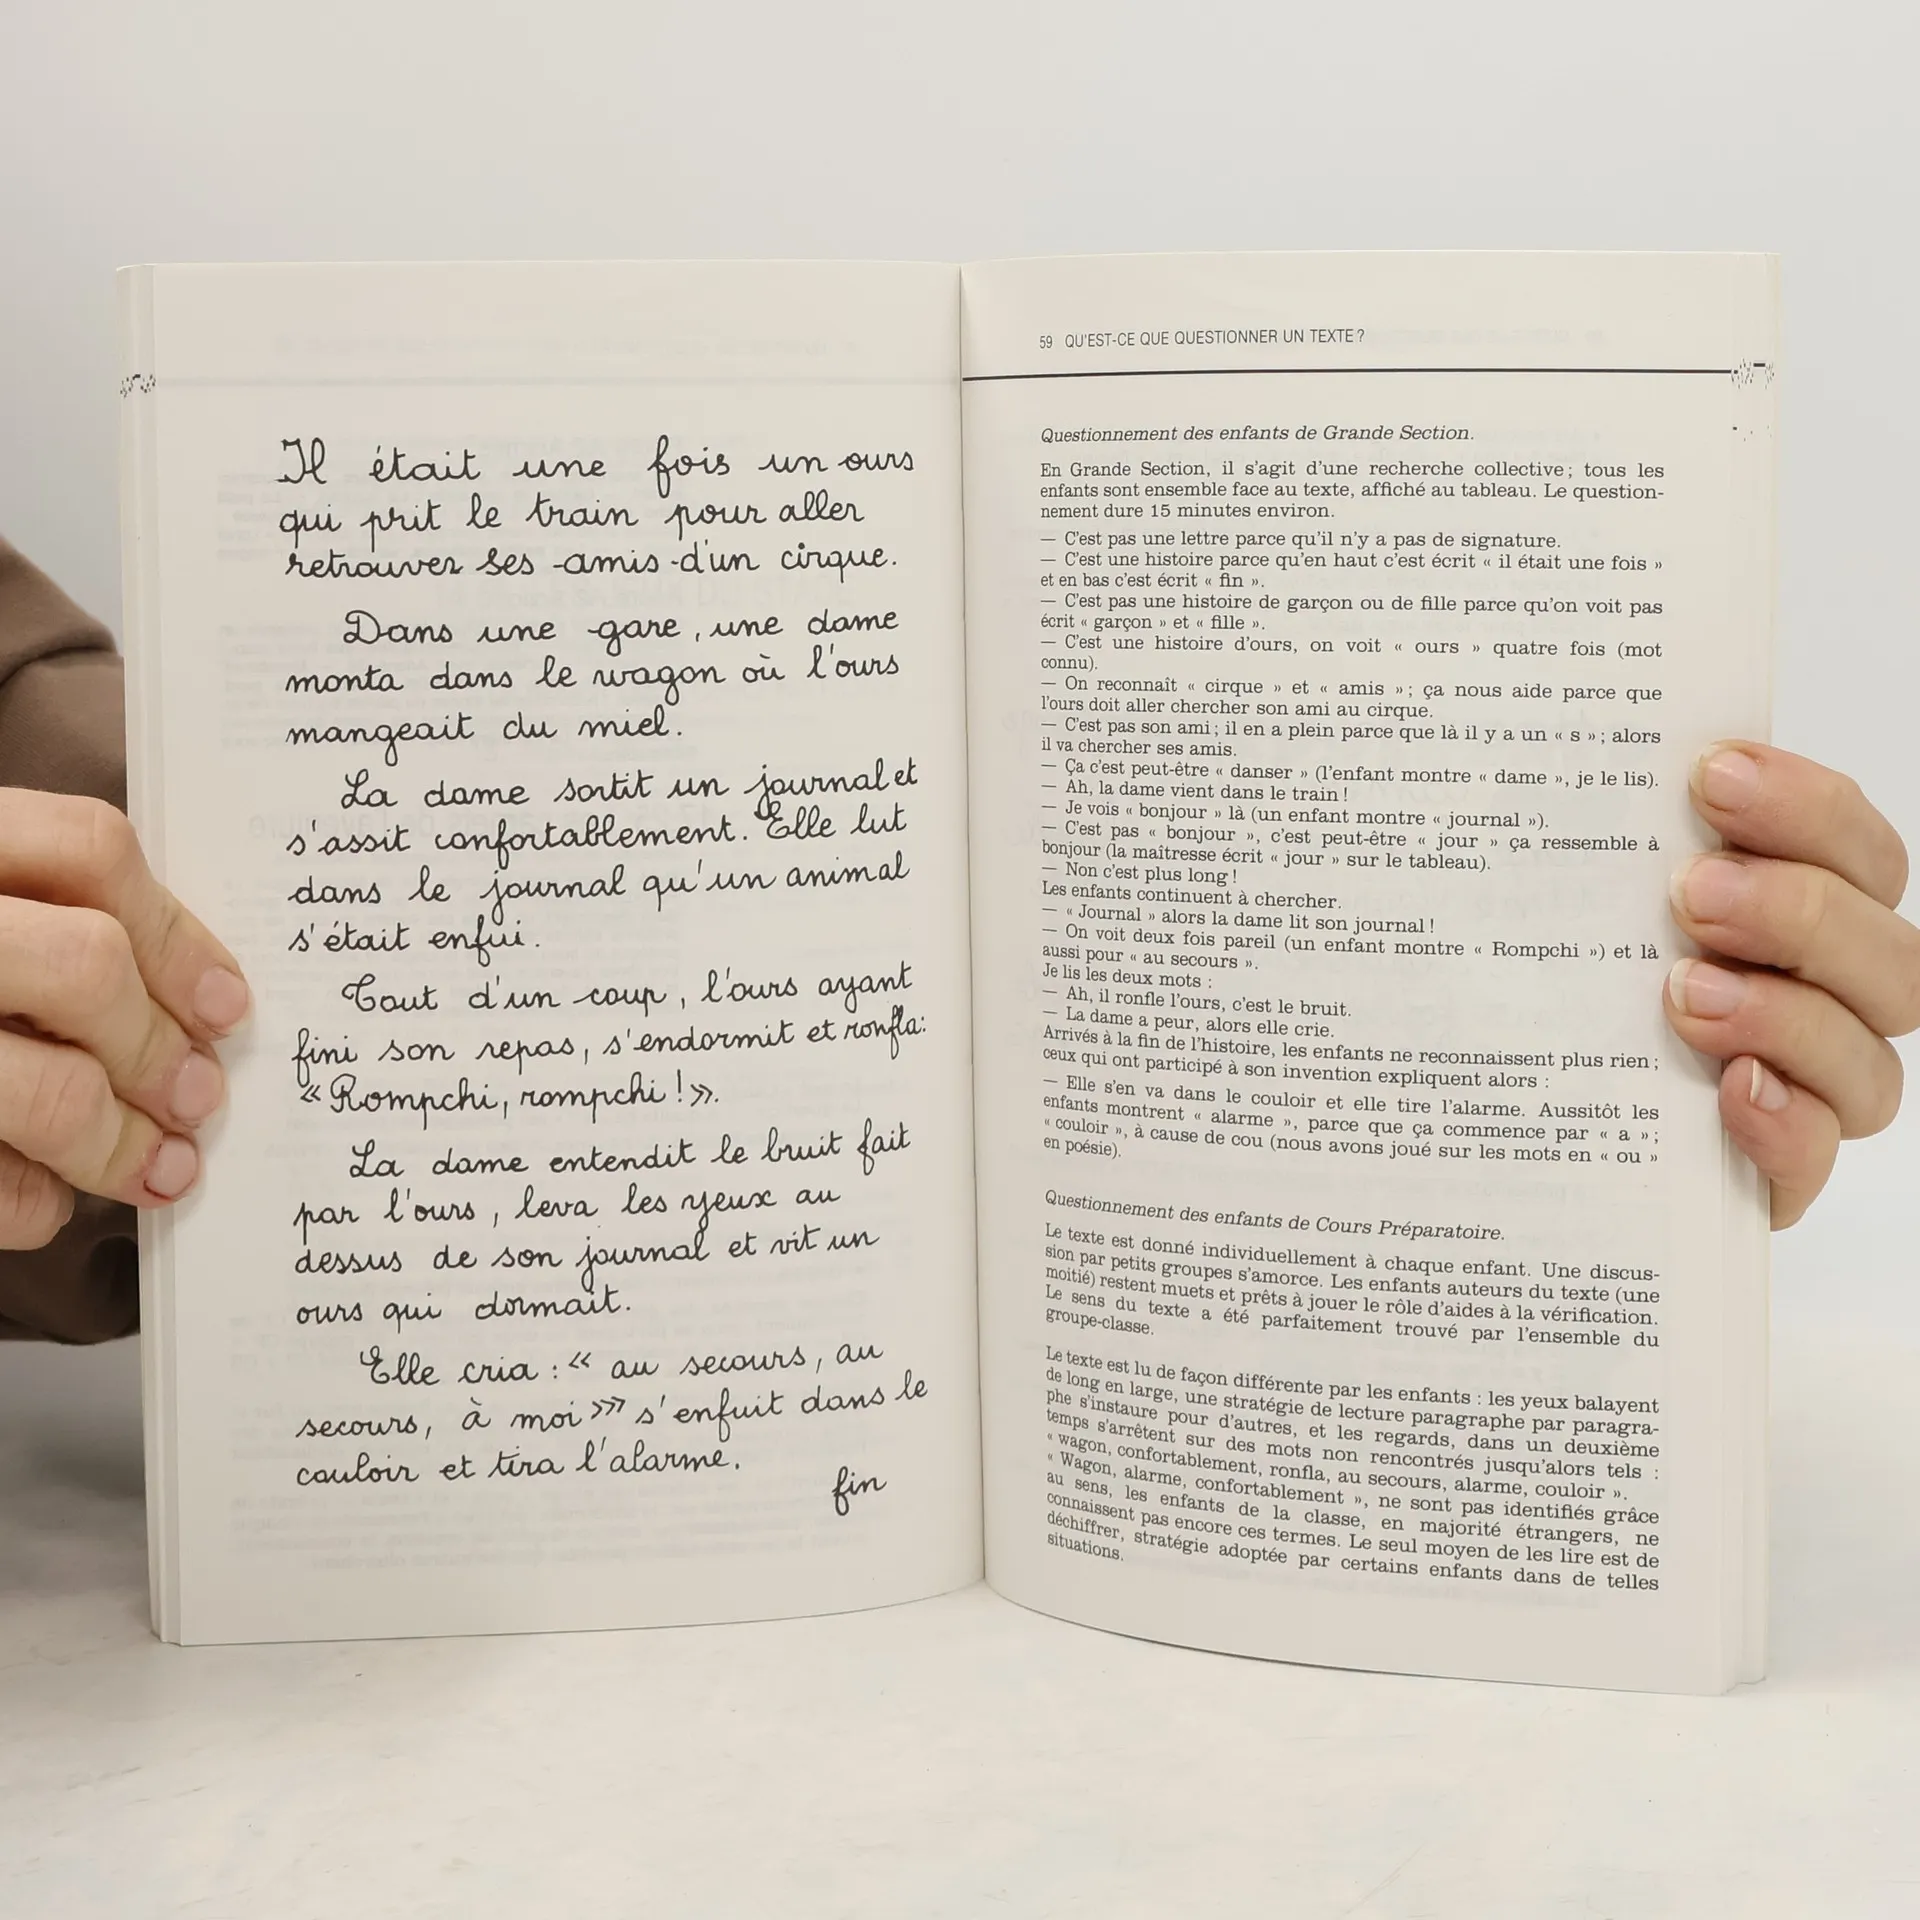 Il était une fois un ours
qui prit le train pour aller
retrouver ses amis d'un cirque.
Dans une gare, une dame
monta dans le wagon où l'ours
mangeait du miel.
La dame sortit un journal et
s'assit confortablement. Elle lut
dans le journal qu'un animal
s'était enfui.
Tout d'un coup, l'ours ayant
fini son repas, s'endormit et ronfla:
« Rompchi, rompchi ! ».
La dame entendit le bruit fait
par l'ours, leva les yeux au
dessus de son journal et vit un
ours qui dormait.
Elle cria : « au secours, au
secours, à moi »» s'enfuit dans le
couloir et tira l'alarme.
fin
59 QU'EST-CE QUE QUESTIONNER UN TEXTE ?
Questionnement des enfants de Grande Section.
En Grande Section, il s'agit d'une recherche collective ; tous les
enfants sont ensemble face au texte, affiché au tableau. Le question-
nement dure 15 minutes environ.
— C'est pas une lettre parce qu'il n'y a pas de signature.
— C'est une histoire parce qu'en haut c'est écrit « il était une fois »
et en bas c'est écrit « fin ».
— C'est pas une histoire de garçon ou de fille parce qu'on voit pas
écrit « garçon » et « fille ».
— C'est une histoire d'ours, on voit « ours » quatre fois (mot
connu).
— On reconnaît « cirque » et « amis » ; ça nous aide parce que
l'ours doit aller chercher son ami au cirque.
— C'est pas son ami ; il en a plein parce que là il y a un « s » ; alors
il va chercher ses amis.
— Ça c'est peut-être « danser » (l'enfant montre « dame », je le lis).
— Ah, la dame vient dans le train !
— Je vois « bonjour » là (un enfant montre « journal »).
— C'est pas « bonjour », c'est peut-être « jour » ça ressemble à
bonjour (la maîtresse écrit « jour » sur le tableau).
— Non c'est plus long !
Les enfants continuent à chercher.
— « Journal » alors la dame lit son journal !
— On voit deux fois pareil (un enfant montre « Rompchi ») et là
aussi pour « au secours ».
Je lis les deux mots :
— Ah, il ronfle l'ours, c'est le bruit.
— La dame a peur, alors elle crie.
Arrivés à la fin de l'histoire, les enfants ne reconnaissent plus rien ;
ceux qui ont participé à son invention expliquent alors :
— Elle s'en va dans le couloir et elle tire l'alarme. Aussitôt les
enfants montrent « alarme », parce que ça commence par « a » ;
« couloir », à cause de cou (nous avons joué sur les mots en « ou »
en poésie).
Questionnement des enfants de Cours Préparatoire.
Le texte est donné individuellement à chaque enfant. Une discus-
sion par petits groupes s'amorce. Les enfants auteurs du texte (une
moitié) restent muets et prêts à jouer le rôle d'aides à la vérification.
Le sens du texte a été parfaitement trouvé par l'ensemble du
groupe-classe.
Le texte est lu de façon différente par les enfants : les yeux balayent
de long en large, une stratégie de lecture paragraphe par paragra-
phe s'instaure pour d'autres, et les regards, dans un deuxième
temps s'arrêtent sur des mots non rencontrés jusqu'alors tels :
« wagon, confortablement, ronfla, au secours, alarme, couloir ».
« Wagon, alarme, confortablement », ne sont pas identifiés grâce
au sens, les enfants de la classe, en majorité étrangers, ne
connaissent pas encore ces termes. Le seul moyen de les lire est de
déchiffrer, stratégie adoptée par certains enfants dans de telles
situations.